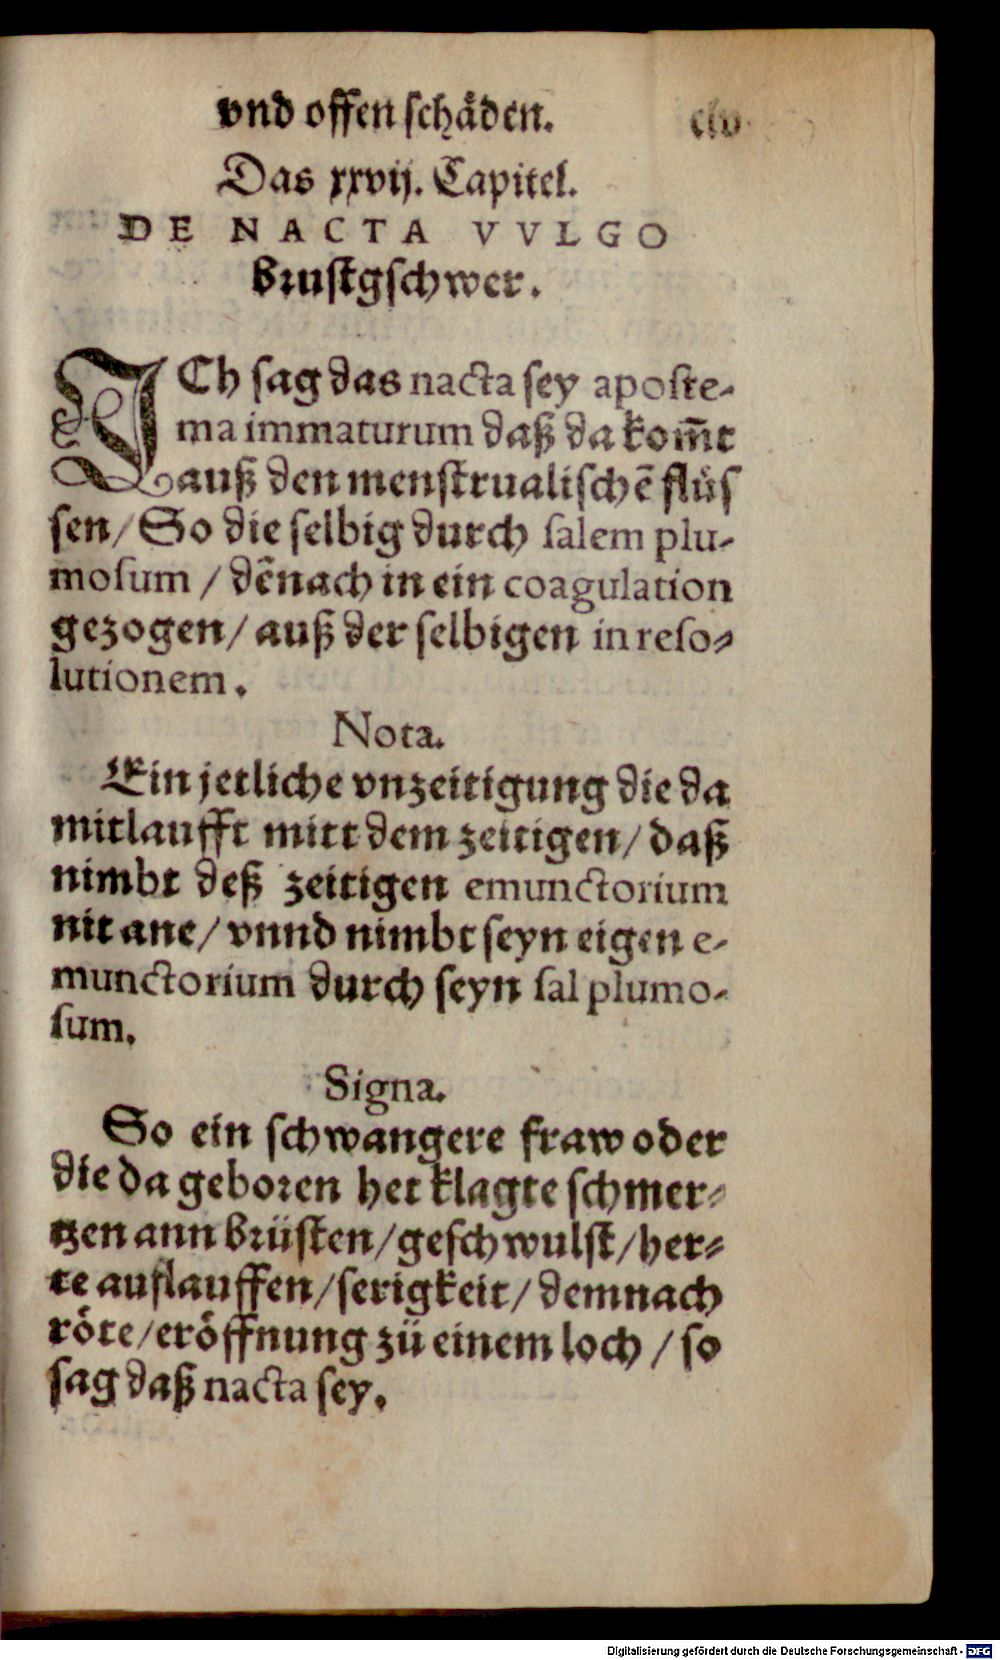 vnd offen schåden. clv
Das xxvij. Capitel.
DE NACTA VVLGO
brustgschwer.
ICh sag das nacta sey aposte-
ma immaturum daß da kom̃t
auß den menstrualischẽ flůs
sen/ So die selbig durch salem plu-
mosum / dẽnach in ein coagulation
gezogen/ auß der selbigen in reso-
lutionem.
Nota.
Ein jetliche vnzeitigung die da
mitlaufft mitt dem zeitigen/ daß
nimbt deß zeitigen emunctorium
nit ane/ vnnd nimbt seyn eigen e-
munctorium durch seyn sal plumo-
sum.
Signa.
So ein schwangere fraw oder
die da geboren het klagte schmer-
tzen ann brüsten/ geschwulst/ her-
te auflauffen/ serigkeit/ demnach
röte/ eröffnung zü einem loch / so
sag daß nacta sey.
Digitalisierung gefördert durch die Deutsche Forschungsgemeinschaft - DFG